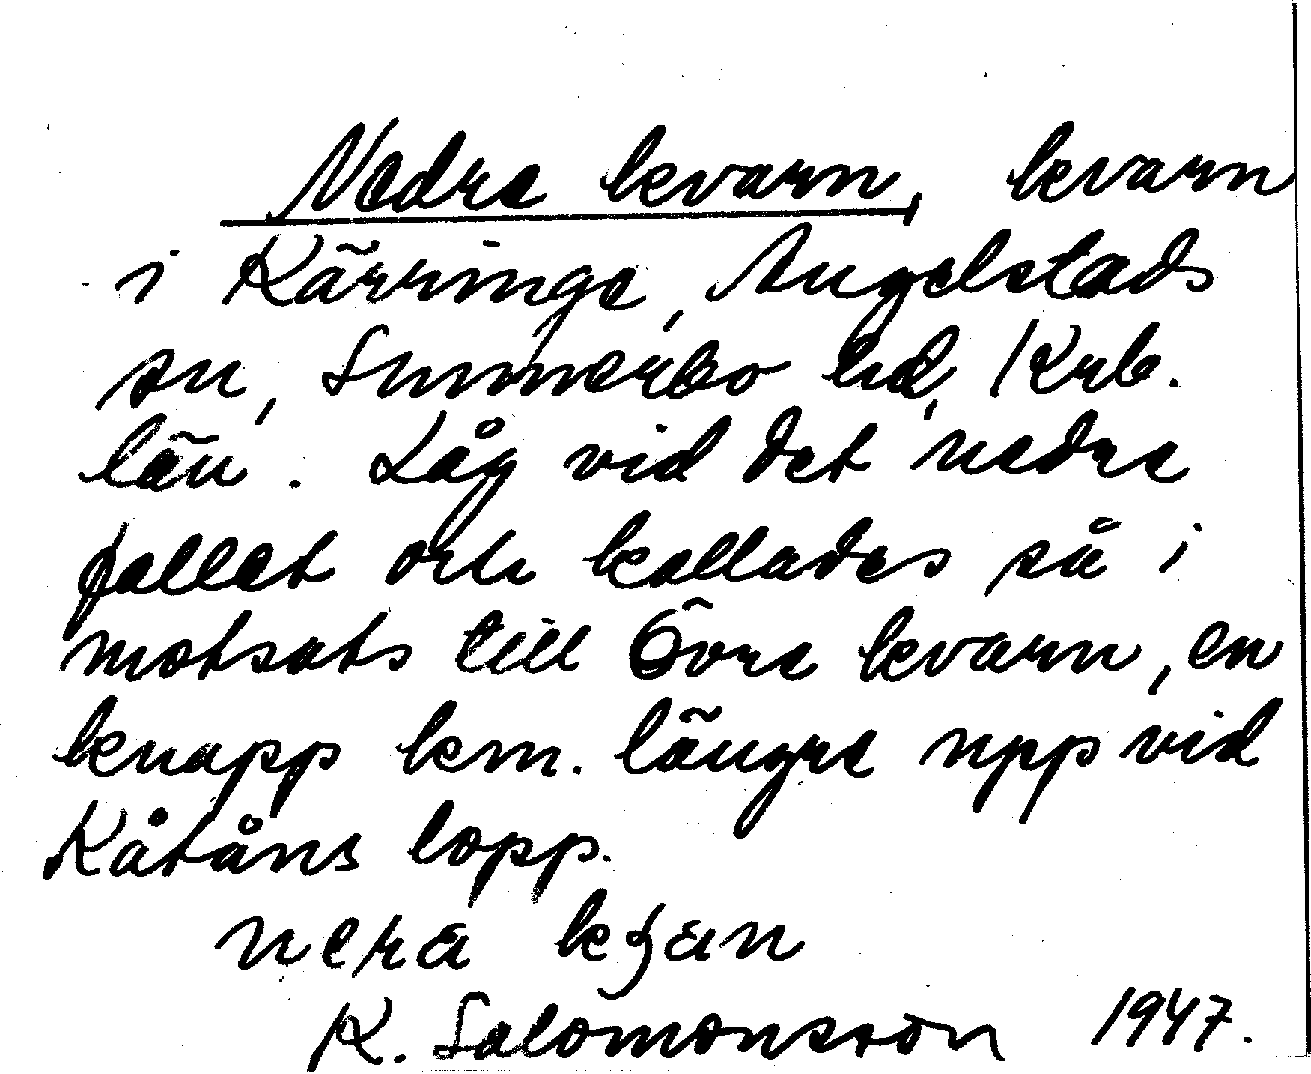 Nedre kvarn, kvarn
i Kärringe, Angelstads
sn, Sunnerbo hd, Krb.
län. Låg vid det nedre
fallet och kallades så i
motsats till Övre kvarn, en
knapp km. längre upp vid
Kåtåns lopp.
nera
K. Salomonsson 1947.